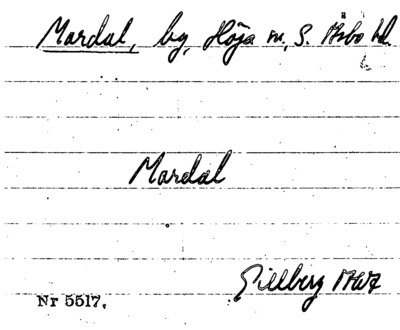 Mardal, by, Höja m, S. Åsbo hd.
Mardal
Gillberg 1767
Nr 5517.